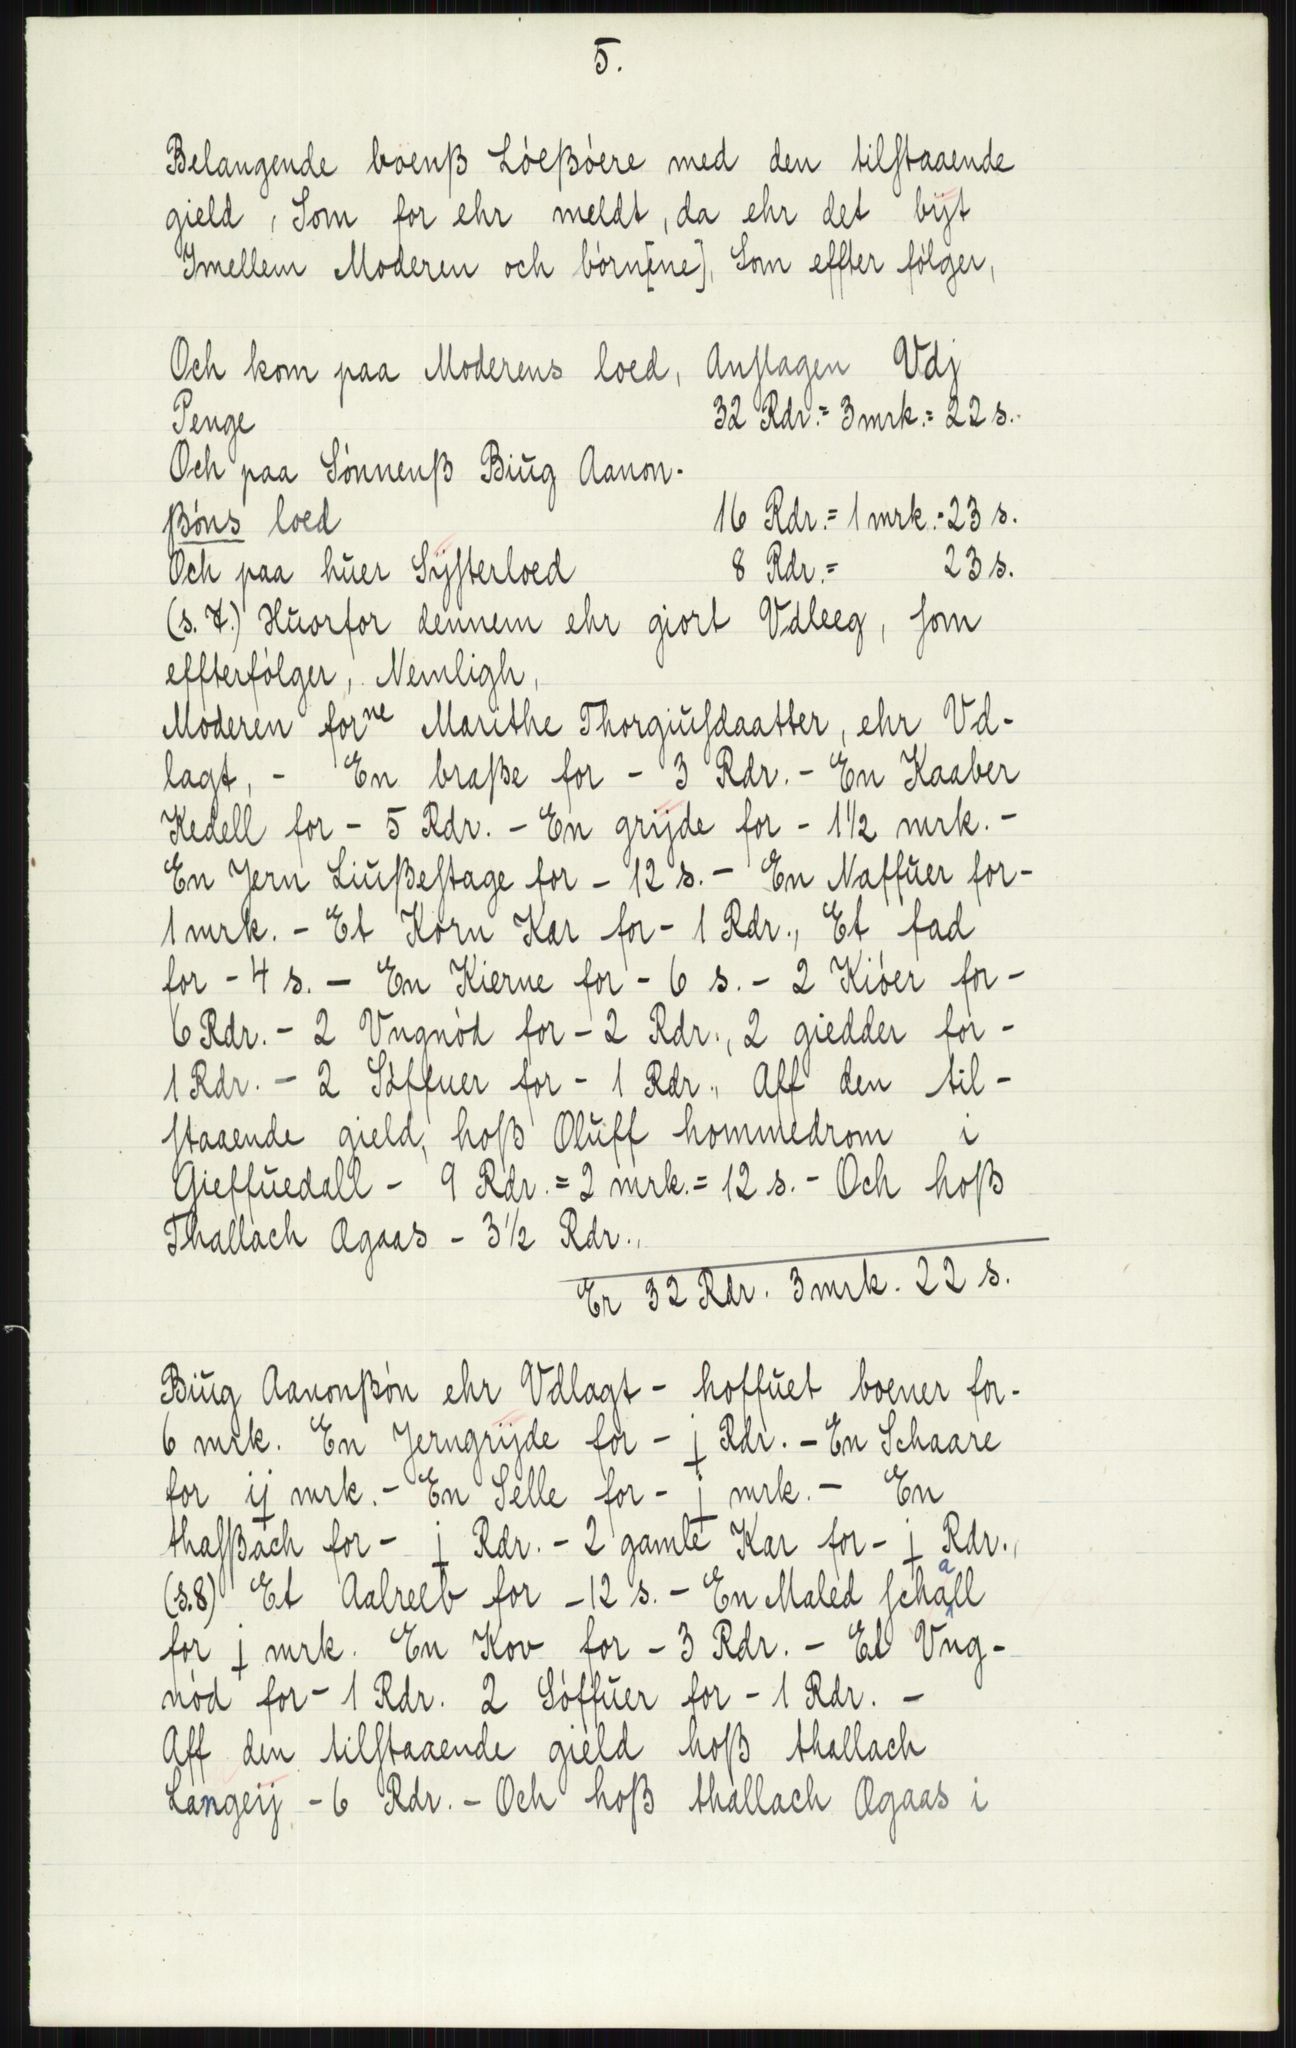 5.
Belangende boenß Löeßöere med den tilstaaende
gield, Som for ehr meldt, da ehr det bijt
Imellem Moderen och börn[ene], Som effter fölger,
Och kom paa Moderens loed, Anslagen Vdj
Penge 32 Rdr.= 3 mrk.= 22 s.
Och paa Sönnenß Biug Aanon-
ßöns loed 16 Rdr.= 1 mrk.- 23 s.
Och paa huer Sijsterloed 8 Rdr.= 23 s.
(s. 7.) Huorfor dennem ehr giort Vdleeg, som
effterfölger, Nemligh,
Moderen forne Marithe Thorgiusdaatter, ehr Vd-
lagt, - En braße for - 3 Rdr. - En Kaaber
Kedell for - 5 Rdr. - En grijde for - 1½ mrk. -
En Jern Liußestage for - 12 s. - En Naffuer for -
1 mrk. - Et Korn Kar for - 1 Rdr., Et fad
for - 4 s. - En Kierne for - 6 s. - 2 Kiöer for -
6 Rdr. - 2 Vngnöd for - 2 Rdr., 2 giedder for -
1 Rdr. - 2 Söffuer for - 1 Rdr., Aff den til-
staaende gield, hoß Oluff hommedrom i
Gieffuedall - 9 Rdr.= 2 mrk.= 12 s. - Och hoß
Thallach Agaas - 3½ Rdr.,
Er 32 Rdr. 3 mrk. 22 s.
Biug Aanonßön ehr Vdlagt - hoffuet boener for -
6 mrk. En Jerngrijde for - j Rdr. - En Schaare
for ij mrk. - En Selle for - j mrk. - En
thalßach for - j Rdr. - 2 gamle Kar for - j Rdr.,
(s.8) Et Aalreeb for - 12 s. - En Maled schaall
for j mrk. En Kov for - 3 Rdr. - Et Vng-
nöd for - 1 Rdr. 2 Söffuer for - 1 Rdr. -
Aff den tilstaaende gield hoß thallach
Langeij - 6 Rdr. - Och hoß thallach Agaas i